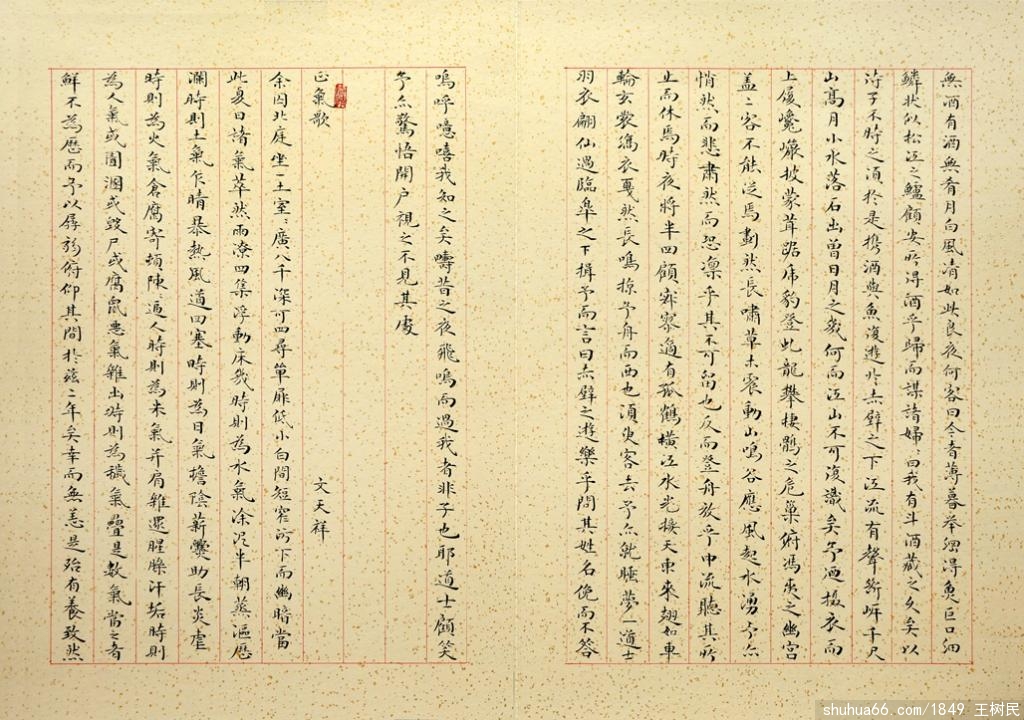 無酒有酒無肴月白風清如此良夜何客曰今者薄暮举網得魚巨口細
鱗状似松江之鱸顧安所得酒乎歸而謀諸婦婦曰我有斗酒藏之久矣以
待子不時之須於是携酒與魚復遊於赤壁之下江流有聲斷岸千尺
山高月小水落石出曽日月之幾何而江山不可復識矣予迺攝衣而
上履巉巖披蒙茸踞虎豹登虬龍攀棲鶻之危巢俯馮夷之幽宮
蓋二客不能從焉劃然長嘯草木震動山鳴谷應風起水湧予亦
悄然而悲肅然而恐凛乎其不可留也反而登舟放乎中流聽其所
止而休焉時夜將半四顧寂寥適有孤鶴橫江水光接天東來翅如車
輪玄裳縞衣戛然長鳴掠予舟而西也須臾客去予亦就睡夢一道士
羽衣翩仙過臨皐之下揖予而言曰赤壁之遊樂乎問其姓名俛而不答
嗚呼噫嘻我知之矣疇昔之夜飛鳴而過我者非子也耶道士顧笑
予亦驚悟開户視之不見其處
正氣歌
文天祥
余囚北庭坐一土室室廣八千深可四尋單扉低小白間短窄汙下而幽暗當
此夏日諸氣萃然雨潦四集浮動床幾時則為水氣涂泥半朝蒸漚歷
瀾時則土氣乍晴暴熱風道四塞時則為日氣擔陰薪爨助長炎虐
時則為火氣倉腐寄頓陳陳逼人時則為米氣并肩雜遝腥臊汗垢時則
為人氣或圊溷或毀尸或腐鼠悪氣雜出時則為穢氣疊是數氣當之者
鮮不為厲而予以孱弱俯仰其間於兹二年矣幸而無恙是殆有養致然
shuhua66.com/1849 王树民